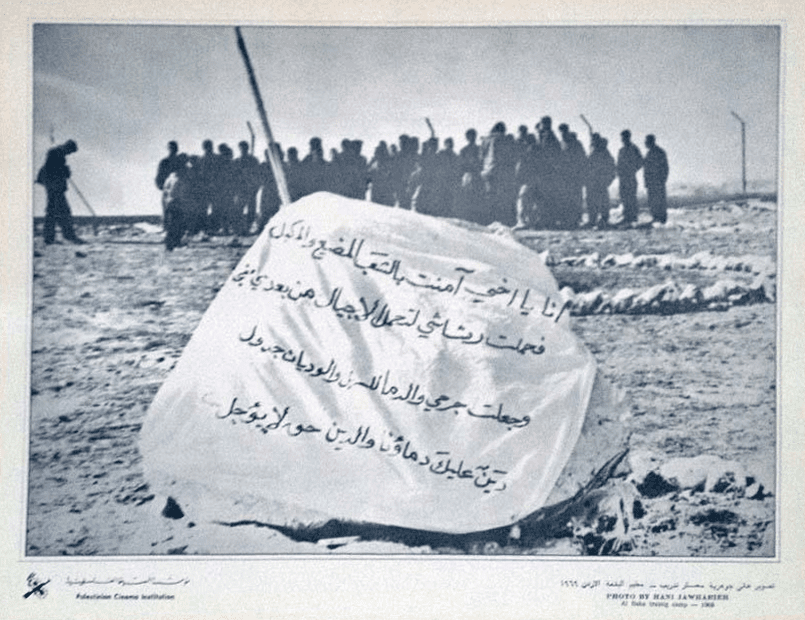 أنا يا اخي آمنت بالشعب المضيع والمكبل
فحملت رشاشي لتحمل الاجيال من بعدي منجل
وجعلت جرحي والدما للسهل والوديان جدول
دين عليك دماؤنا والدين حق لا يؤجل
مؤسسة السينما الفلسطينية
Palestinian Cinema Institution
تصوير هاني جوهرية معسكر تدريب — مخيم البقعة الاردن ١٩٦٩
PHOTO BY HANI JAWHARIEH
Al Baka camp —